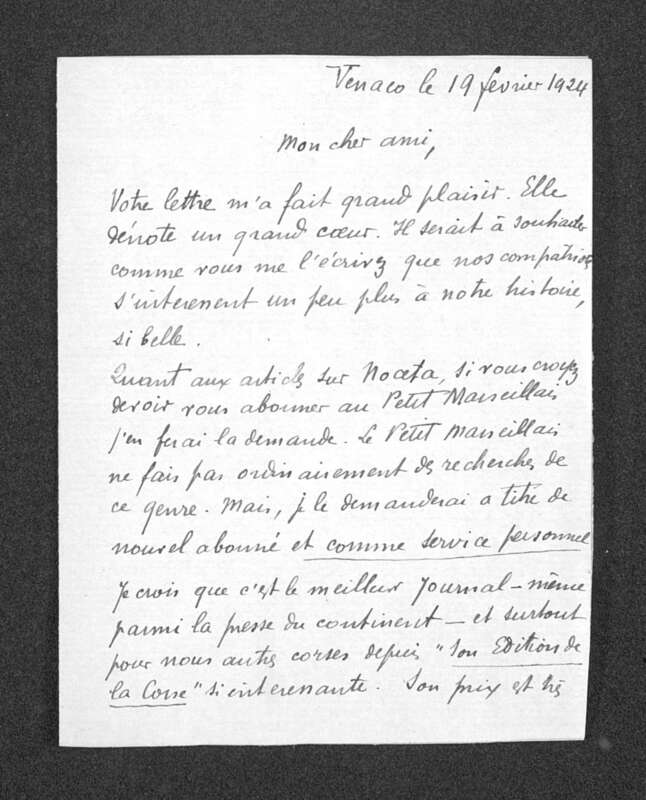 Venaco le 19 fevrier 1924
Mon cher ami,
Votre lettre m'a fait grand plaisir. Elle
dénote un grand cœur. Il serait à souhaiter
comme vous me l'écrivez que nos compatriotes
s'interessent un peu plus à notre histoire,
si belle.
Quant aux articles sur Noceta, si vous croyez
devoir vous abonner au Petit Marseillais
j'en ferai la demande. Le Petit Marseillais
ne fais pas ordinairement des recherches de
ce genre. Mais, je le demanderai a titre de
nouvel abonné et comme service personnel
Je crois que c'est le meilleur Journal – même
parmi la presse du continent – et surtout
pour nous autres corses depuis "son Edition de
la Corse" si interessante. Son prix est très